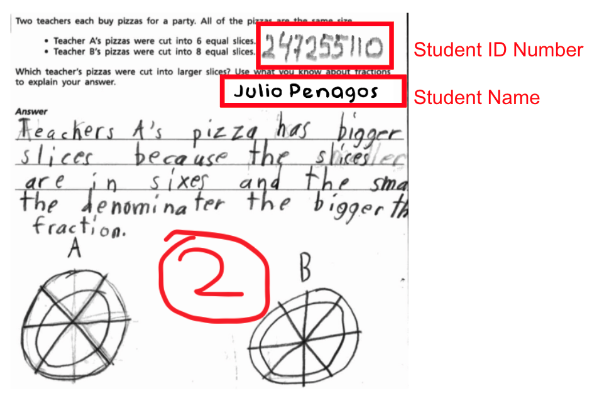 Two teachers each buy pizzas for a party. All of the pizzas are the same size.
• Teacher A's pizzas were cut into 6 equal slices.
• Teacher B's pizzas were cut into 8 equal slices.
247255110
Student ID Number
Which teacher's pizzas were cut into larger slices? Use what you know about fractions
to explain your answer.
Julio Penagos
Student Name
Answer
Teachers A's pizza has bigger
slices because the slices
are in sixes and the sma
the denominater the bigger th
fraction.
A
2
B